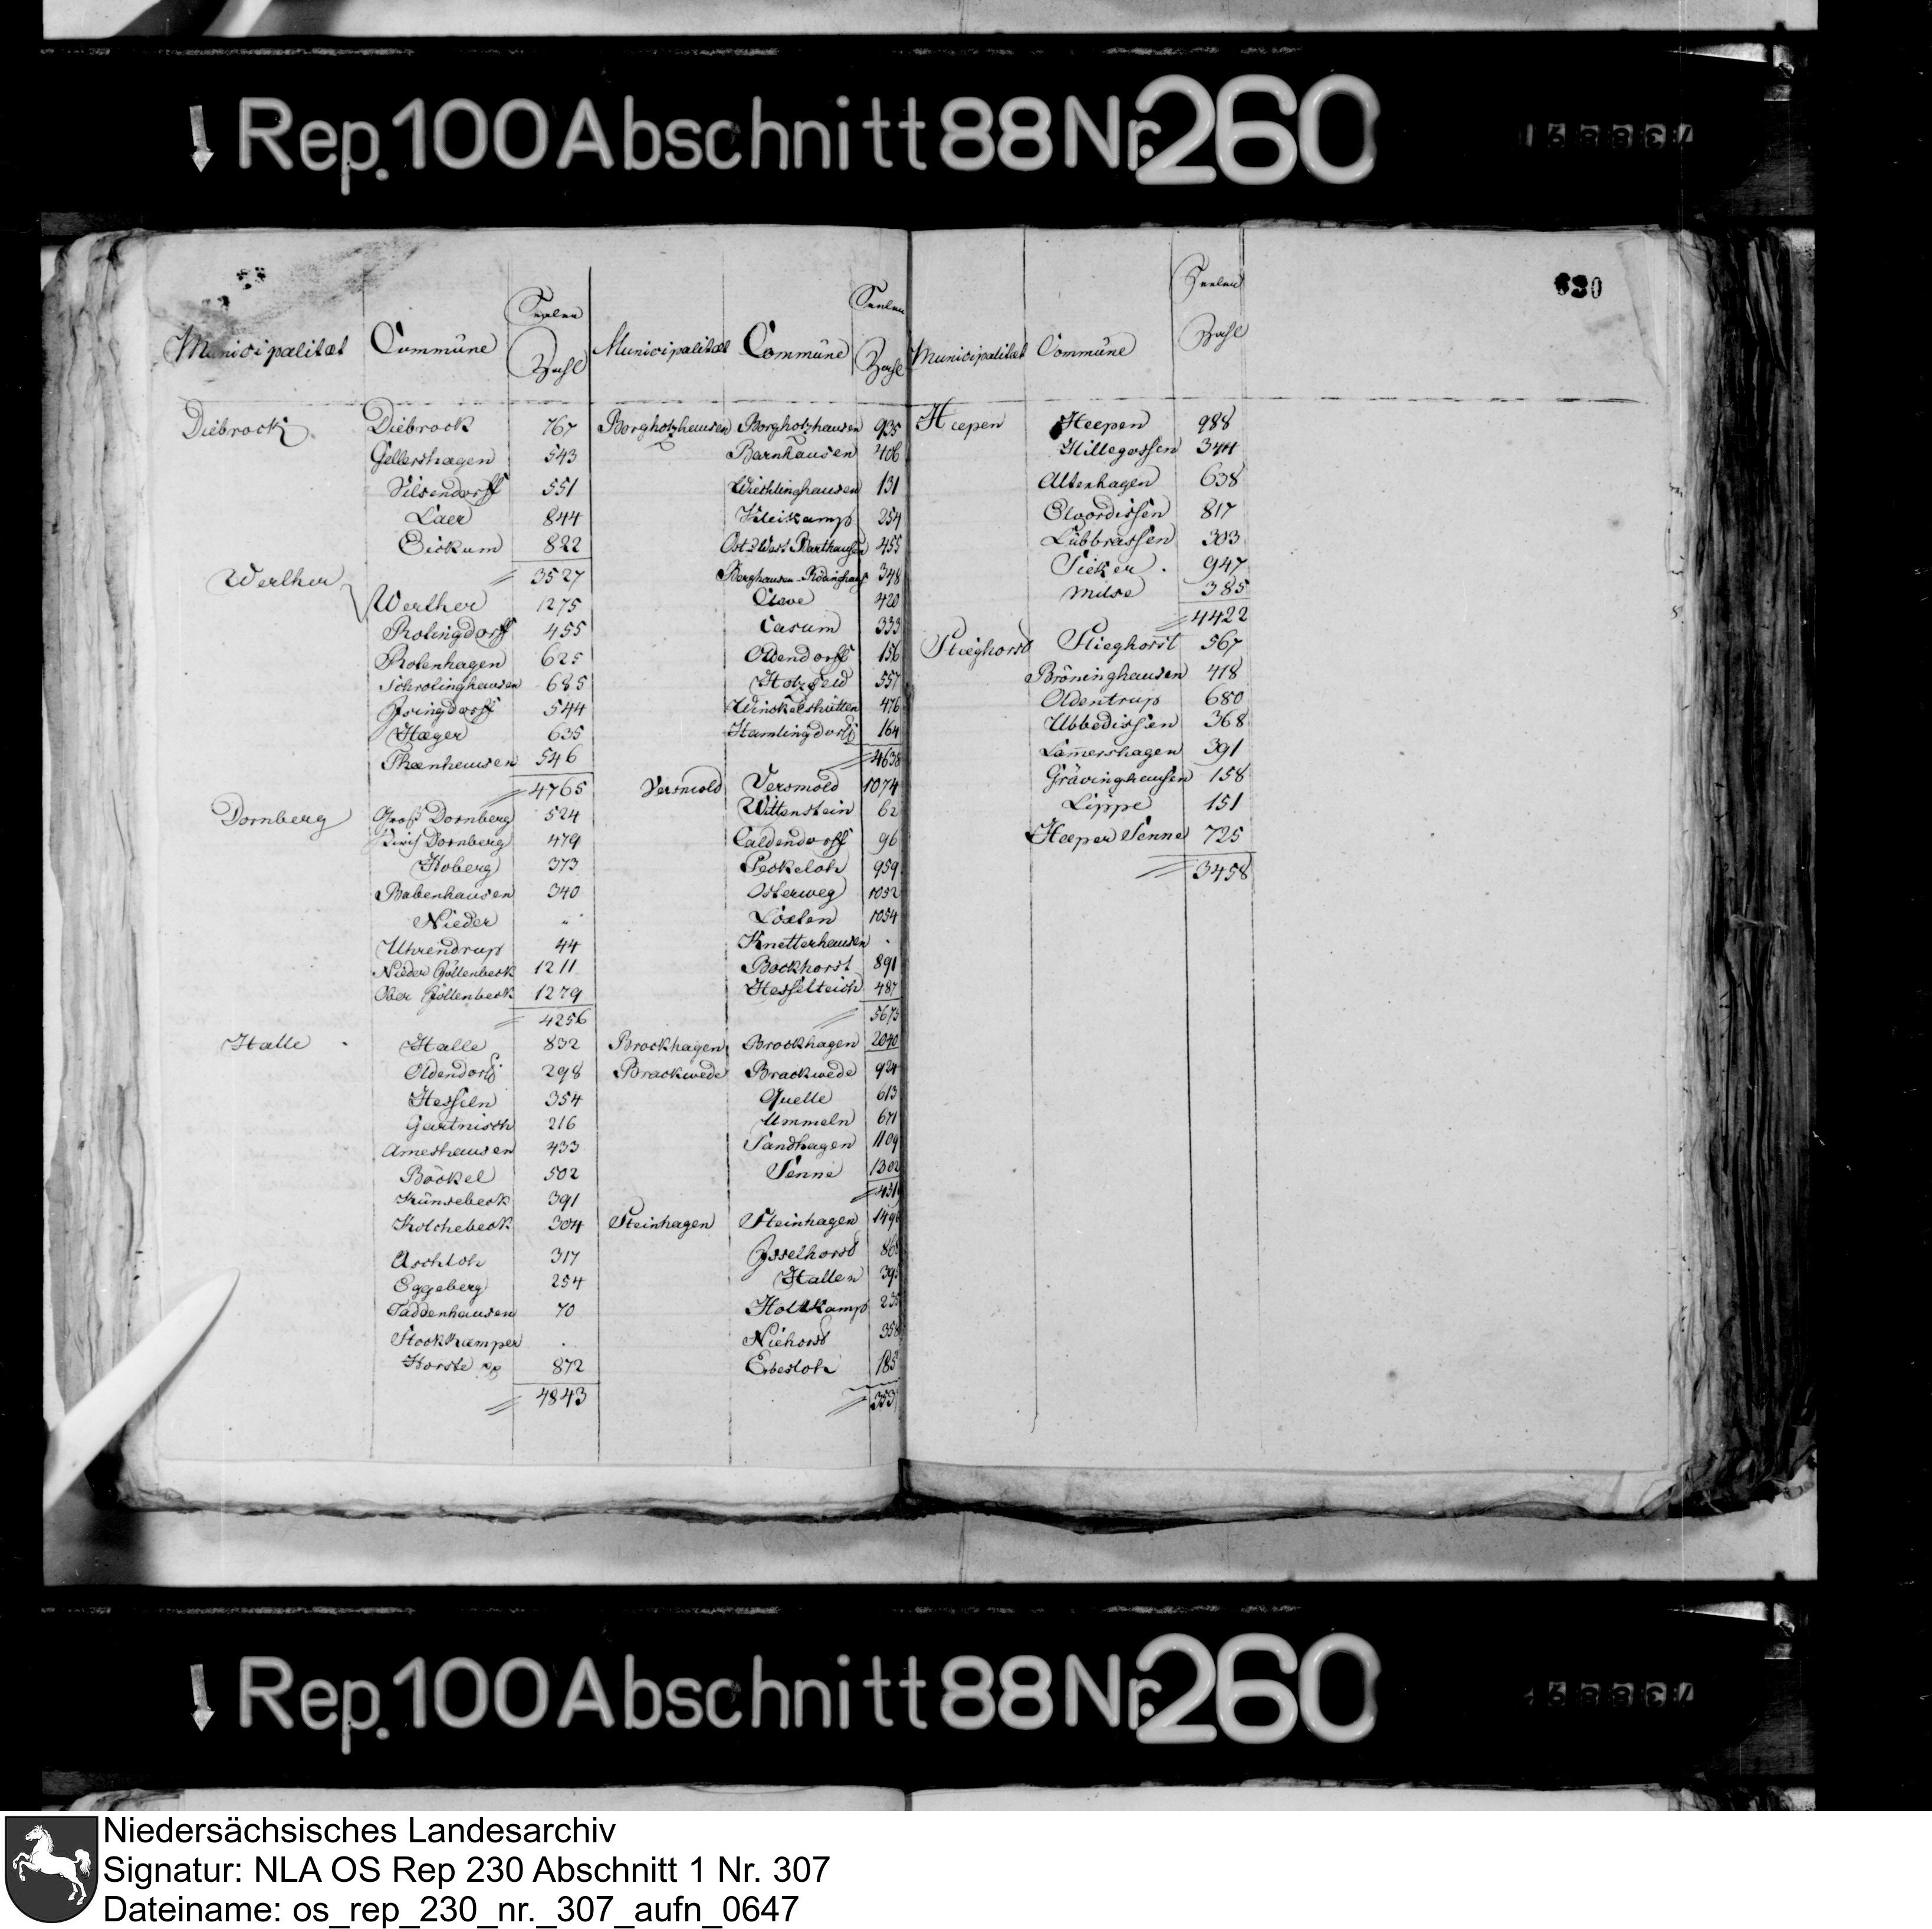 Rep. 100 Abschnitt 88 Nr. 260
630
Municipalitæt Commüne Seelen Zahl
Diebrock Diebrock 767
Gellershagen 543
Vilsendorff 551
Laer 844
Eickum 822
3527
Werther Werther 1275
Rotingdorff 455
Rotenhagen 625
Schrotinghausen 685
Isingdorff 544
Hæger 635
Thæenhausen 546
4765
Dornberg Groß Dornberg 524
Kirch Dornberg 479
Hoberg 373
Babenhausen 340
Nieder "
Uhrendrup 44
Nieder Jöllenbeck 1211
Ober Jöllenbeck 1279
4256
Halle Halle 832
Oldendorff 298
Hesseln 354
Gartnisch 216
Ameshausen 433
Böckel 502
Künsebeck 391
Kölchebeck 304
Aschloh 317
Eggeberg 254
Taddenhausen 70
Stockkæmper .
Horste pp 872
4843
Municipalitæt Commüne Seelen Zahl
Borgholzhausen Borgholzhausen 935
Barnhausen 406
Wichlinghausen 131
Kleikamp 254
Ost & West Barthausen 455
Berghausen - Rödinghaus 348
Cleve 420
Casum 333
Oldendorff 156
Holzfeld 557
Winckelshütten 476
Hamlingdorff 164
4638
Versmold Versmold 1074
Wittenstein 62
Caldendorff 96
Peckeloh 959
Osterweg 1052
Loxten 1054
Knetterhausen .
Bockhorst 891
Hesselteich 487
5675
Brockhagen Brockhagen 2040
Brackwede Brackwede 924
Quelle 613
Ummeln 671
Sandhagen 1109
Senne 1302
Steinhagen Steinhagen
Isselhorst
Hollen
Holtkamp
Niehorst
Ebbesloh 185
Municipalitæt Commüne Seelen Zahl
Heepen Heepen 988
Hillegossen 344
Altenhagen 638
Elvordissen 817
Lübbrassen 303
Sieker . 947
Milse 385
4422
Stieghorst Stieghorst 567
Bröninghausen 418
Oldentrup 680
Ubbedissen 368
Lam̄ershagen 391
Grävinghausen 158
Lippe 151
Heeper Senne 725
3458
Rep. 100 Abschnitt 88 Nr. 260
Niedersächsisches Landesarchiv
Signatur: NLA OS Rep 230 Abschnitt 1 Nr. 307
Dateiname: os_rep_230_nr._307_aufn_0647